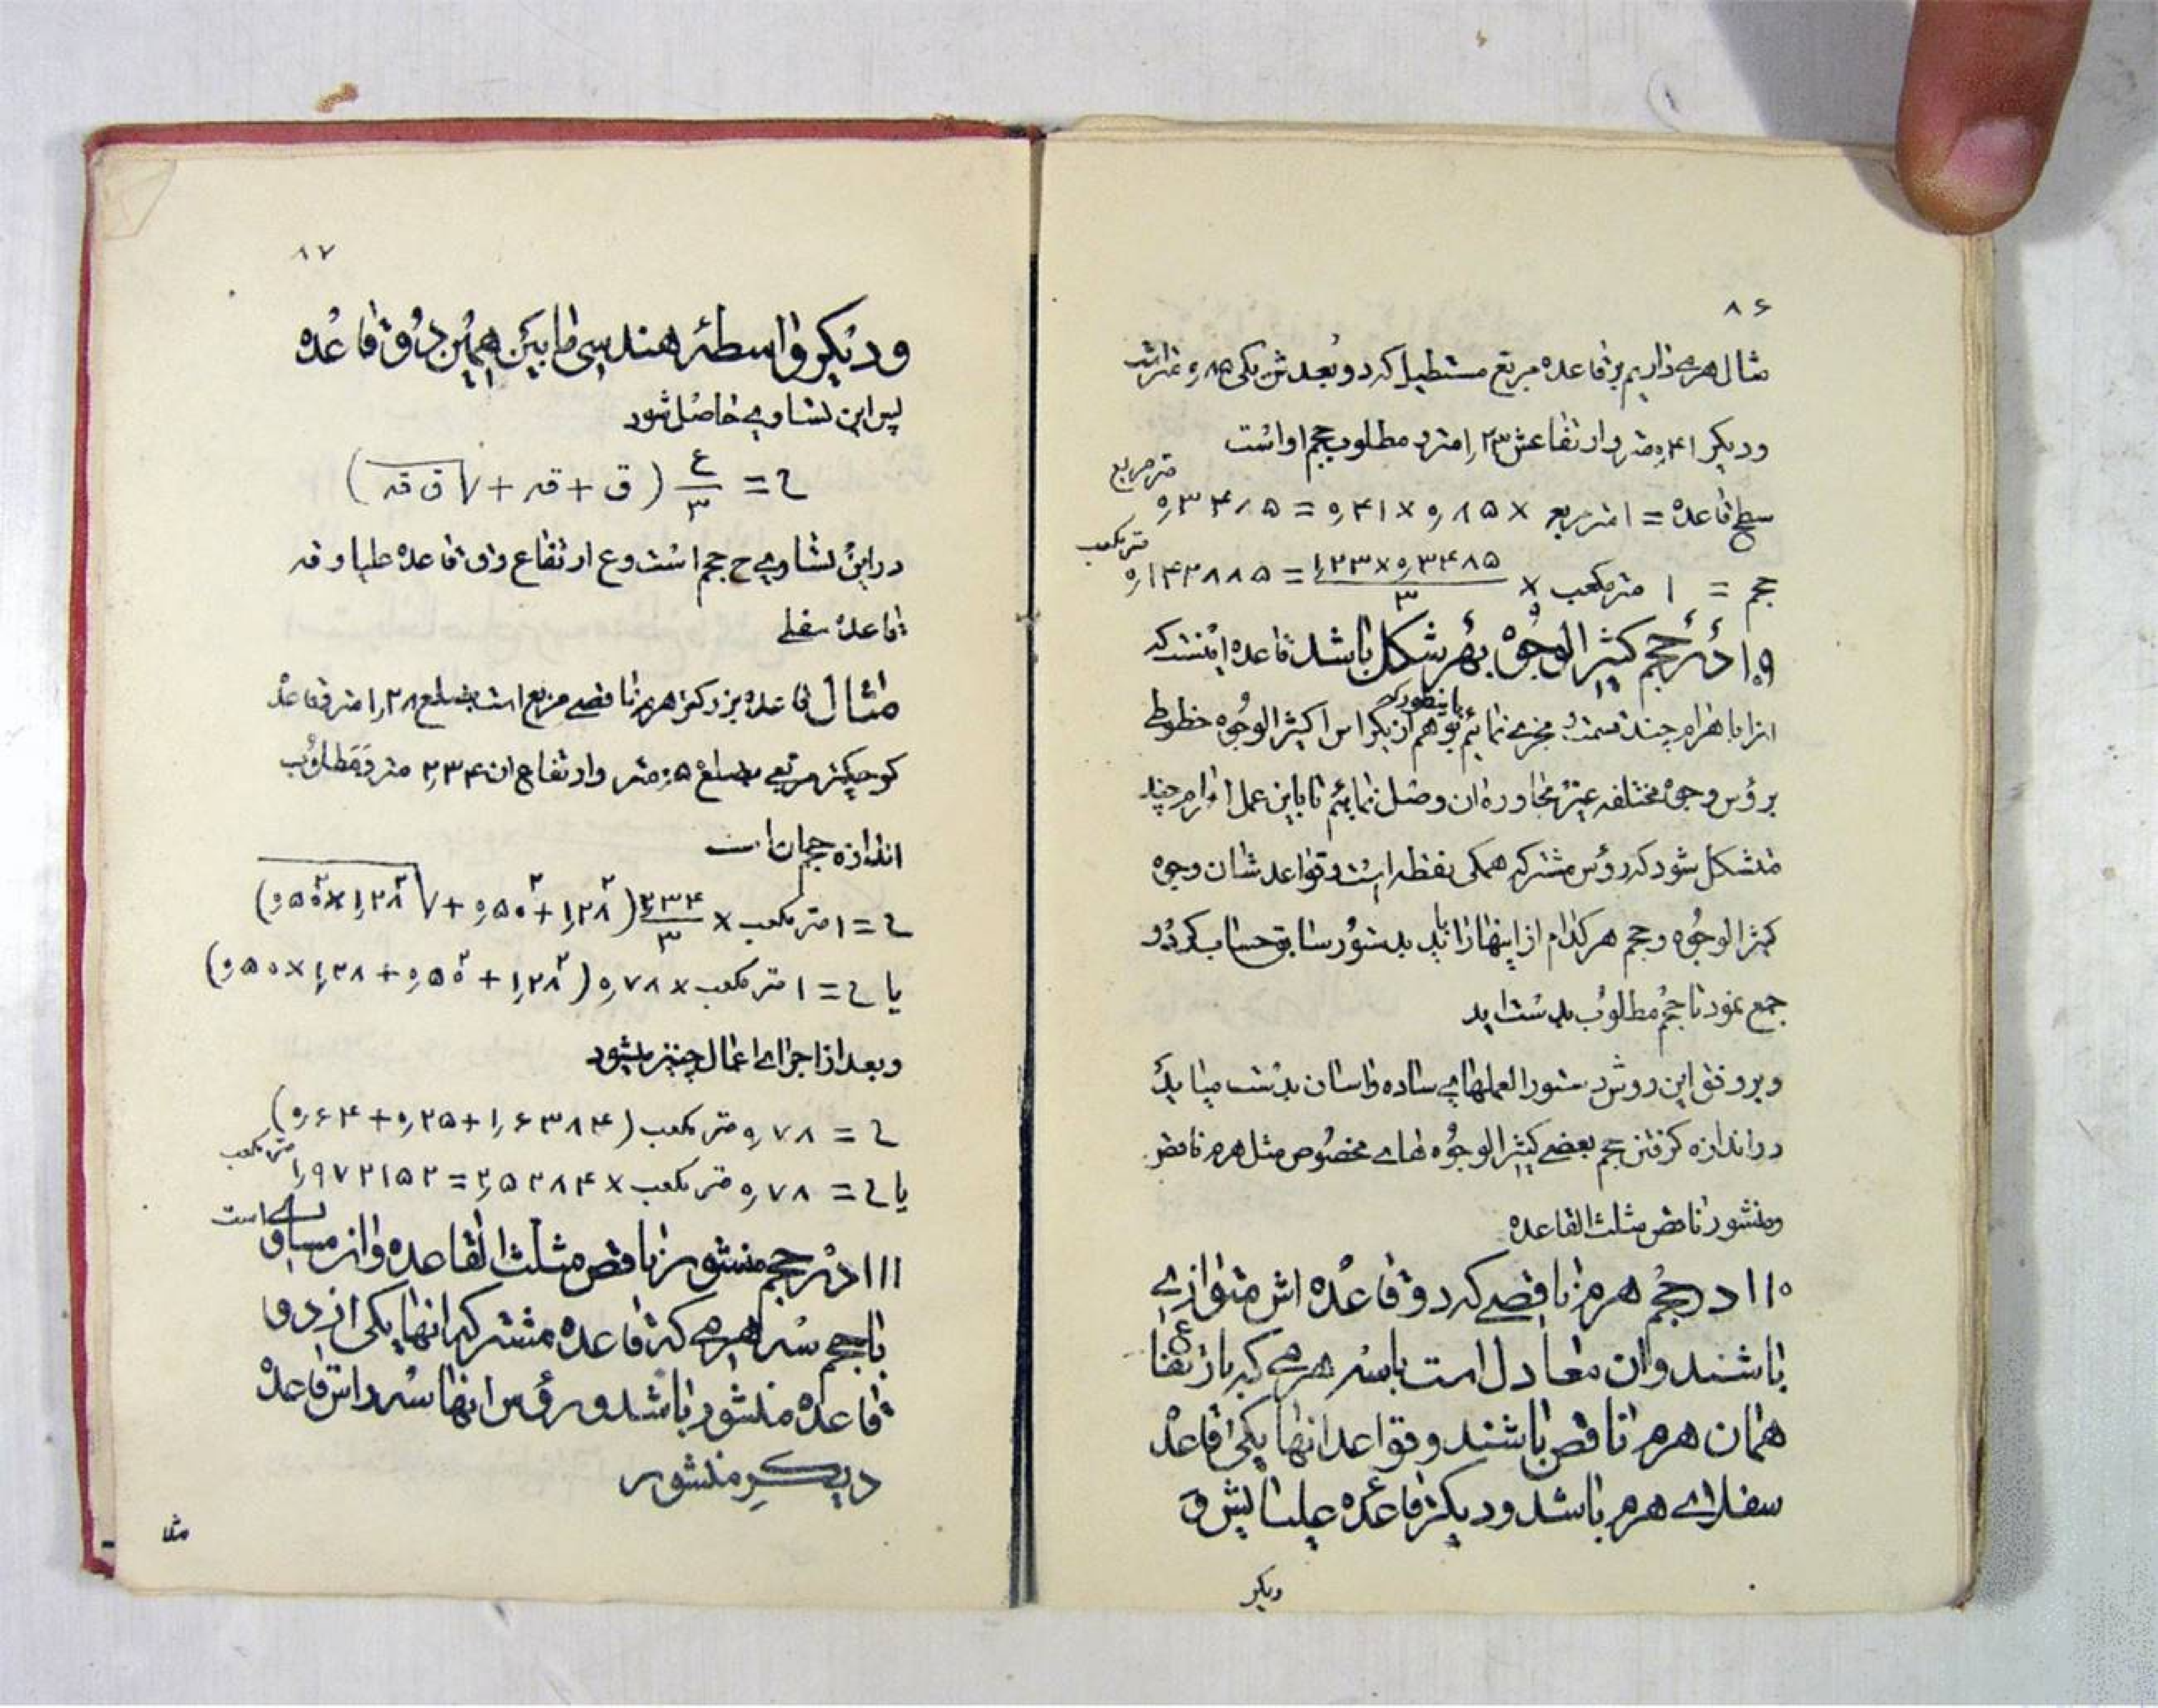 ۸۶
مثال هرمی داریم بر قاعده مربع مستطیل که دو بعدش یکی ۰٫۸۵ متر است
و دیگر ۰٫۴۱ متر و ارتفاعش ۱٫۲۳ متر و مطلوب حجم او است
سطح قاعده = ۱ متر مربع × ۰٫۸۵ × ۰٫۴۱ = ۰٫۳۴۸۵ متر مربع
حجم = ۱ متر مکعب × ۱٫۲۳×۰٫۳۴۸۵ / ۳ = ۰٫۱۴۲۸۸۵ متر مکعب
۱۰۹ در حجم کثیر الوجوه بهر شکل باشد قاعده اینست که
انرا باهرام چند قسمت مجزی نمائیم باینطور که از یک راس کثیر الوجوه خطوطی
برؤس وجوه مختلفه غیر مجاوره ان وصل نمائیم تا باین عمل اهرام چند
متشکل شود که رؤس مشترکه همکی نقطه است و قواعدشان وجوه
کثیر الوجوه و حجم هر کدام از اینها را باید بدستور سابق حساب کرد و
جمع نمود تا حجم مطلوب بدست اید
و بر وفق این روش دستور العملهای ساده و اسان بدست میاید
در اندازه کرفتن حجم بعضی کثیر الوجوه های مخصوص مثل هرم ناقص
و منشور ناقص مثلث القاعده
۱۱۰ در حجم هرم ناقصی که دو قاعده اش متوازی
باشند و ان معادل است با سه هرمی که بارتفاع
همان هرم ناقص باشند و قواعد انها یکی قاعده
سفلای هرم باشد و دیکر قاعده علیایش و
دیکر
۸۷
و دیکر واسطهٔ هندسی مابین همین دو قاعده
پس این تساوی حاصل شود
ح = ع/۳ (ق + قہ + √ق قہ)
در این تساوی ح حجم است و ع ارتفاع و ق قاعده علیا و قہ
قاعده سفلی
مثال قاعده بزرکتر هرم ناقصی مربع است بضلع ۱٫۲۸ متر و قاعده
کوچکتر مربعی بضلع ۰٫۵ متر و ارتفاع ان ۲٫۳۴ متر و مطلوب
اندازه حجم ان است
ح = ۱ متر مکعب × ۲٫۳۴/۳ (۱٫۲۸² + ۰٫۵۰² + √۱٫۲۸²×۰٫۵۰²)
یا ح = ۱ متر مکعب × ۰٫۷۸ (۱٫۲۸² + ۰٫۵۰² + ۱٫۲۸×۰٫۵۰)
و بعد از اجرای اعمال چنین میشود
ح = ۰٫۷۸ متر مکعب (۱٫۶۳۸۴ + ۰٫۲۵ + ۰٫۶۴)
یا ح = ۰٫۷۸ متر مکعب × ۲٫۵۲۸۴ = ۱٫۹۷۲۱۵۲ متر مکعب
۱۱۱ در حجم منشور ناقص مثلث القاعده و ان مساوی است
با حجم سه هرمی که قاعده مشترکه انها یکی از دو
قاعده منشور باشد و رؤس انها سه راس قاعده
دیکر منشور
مثا